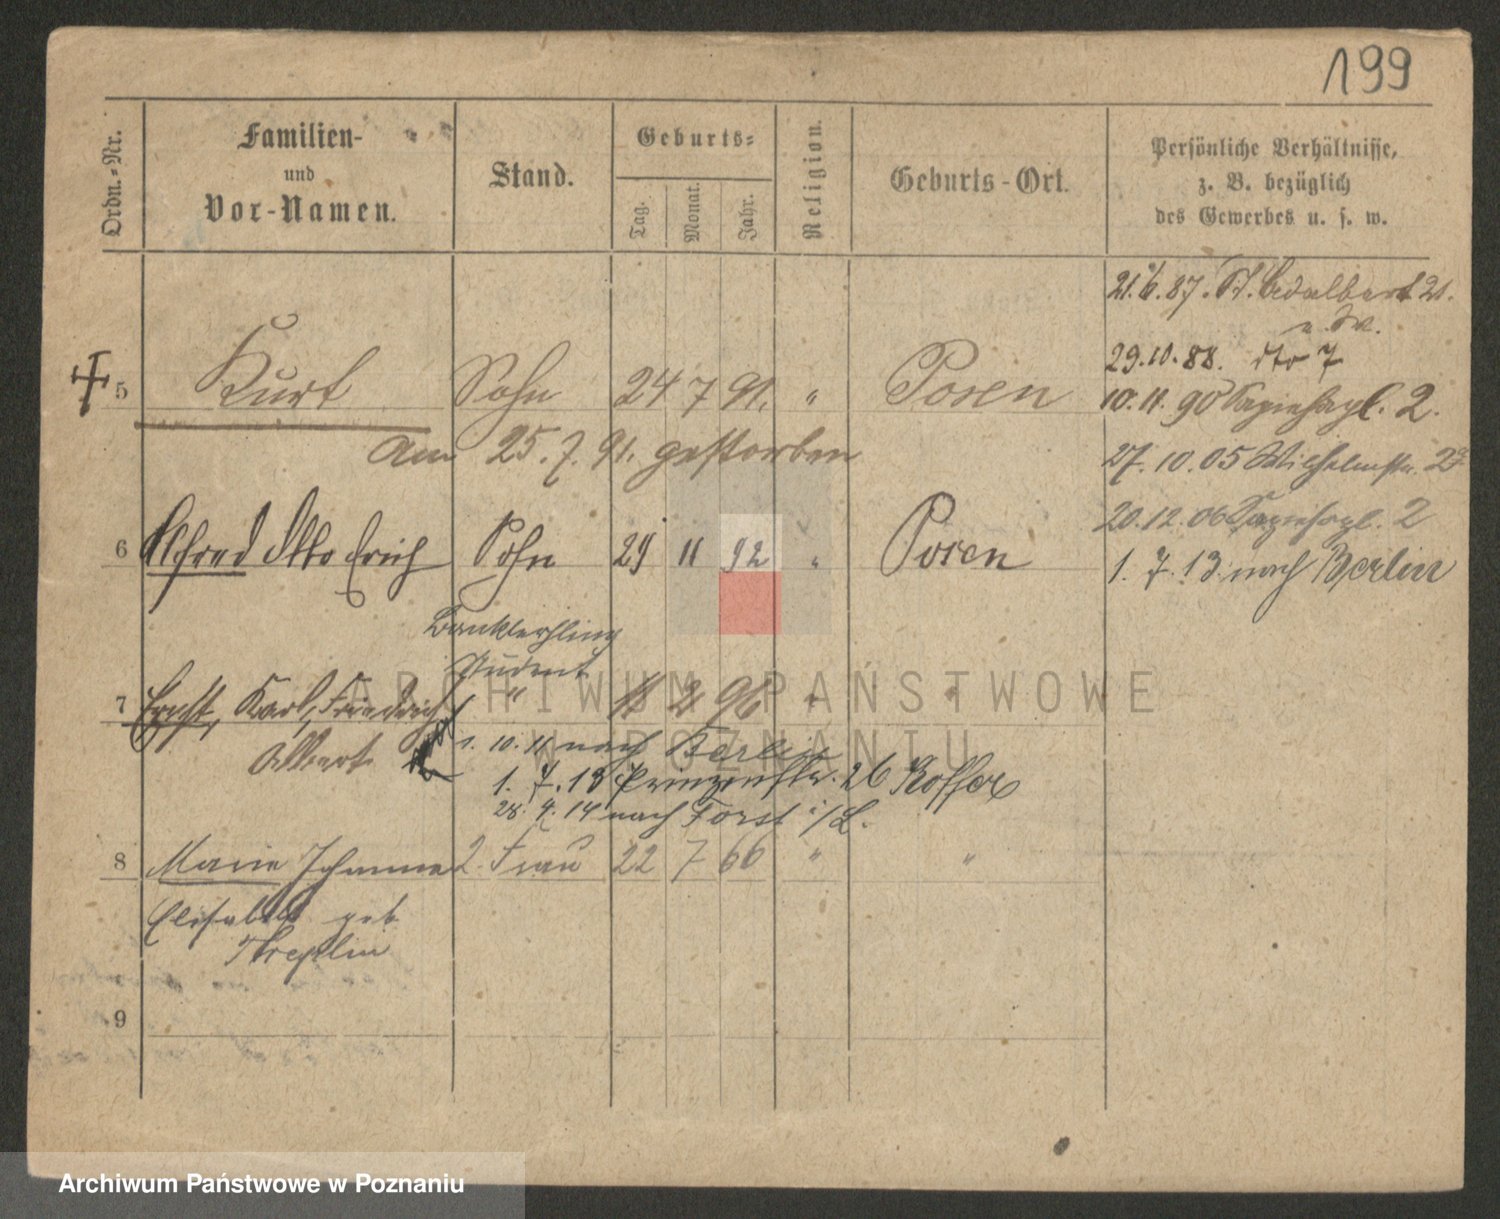 199
Ordn.-Nr.
Familien-
und
Vor-Namen.
Stand.
Geburts-
Tag.
Monat.
Jahr.
Religion.
Geburts-Ort.
Persönliche Verhältnisse,
z. B. bezüglich
des Gewerbes u. s. w.
21.6.87. St. Adalbert 21.
29.10.88. dto 7
10.11.90 Sapiehapl. 2.
27.10.05 Wilhelmstr.
20.12.06 Sapiehapl. 2
1.7.13 nach Berlin
5 Kurt Sohn 24 7 91. " Posen
Am 25.7.91. gestorben
6 Alfred Otto Erich Sohn 29 11 92 " Posen
Banklehrling
Student
7 Ernst, Karl, Friedrich " 2 96 " "
Albert
1.10.11 nach Berlin
1.7.13 Prinzenstr. 26
28.4.14 nach Forst i/L.
8 Marie Johanna 2. Frau 22 7 66 " "
Elisabeth geb
Threplin
9
ARCHIWUM PAŃSTWOWE
W POZNANIU
Archiwum Państwowe w Poznaniu